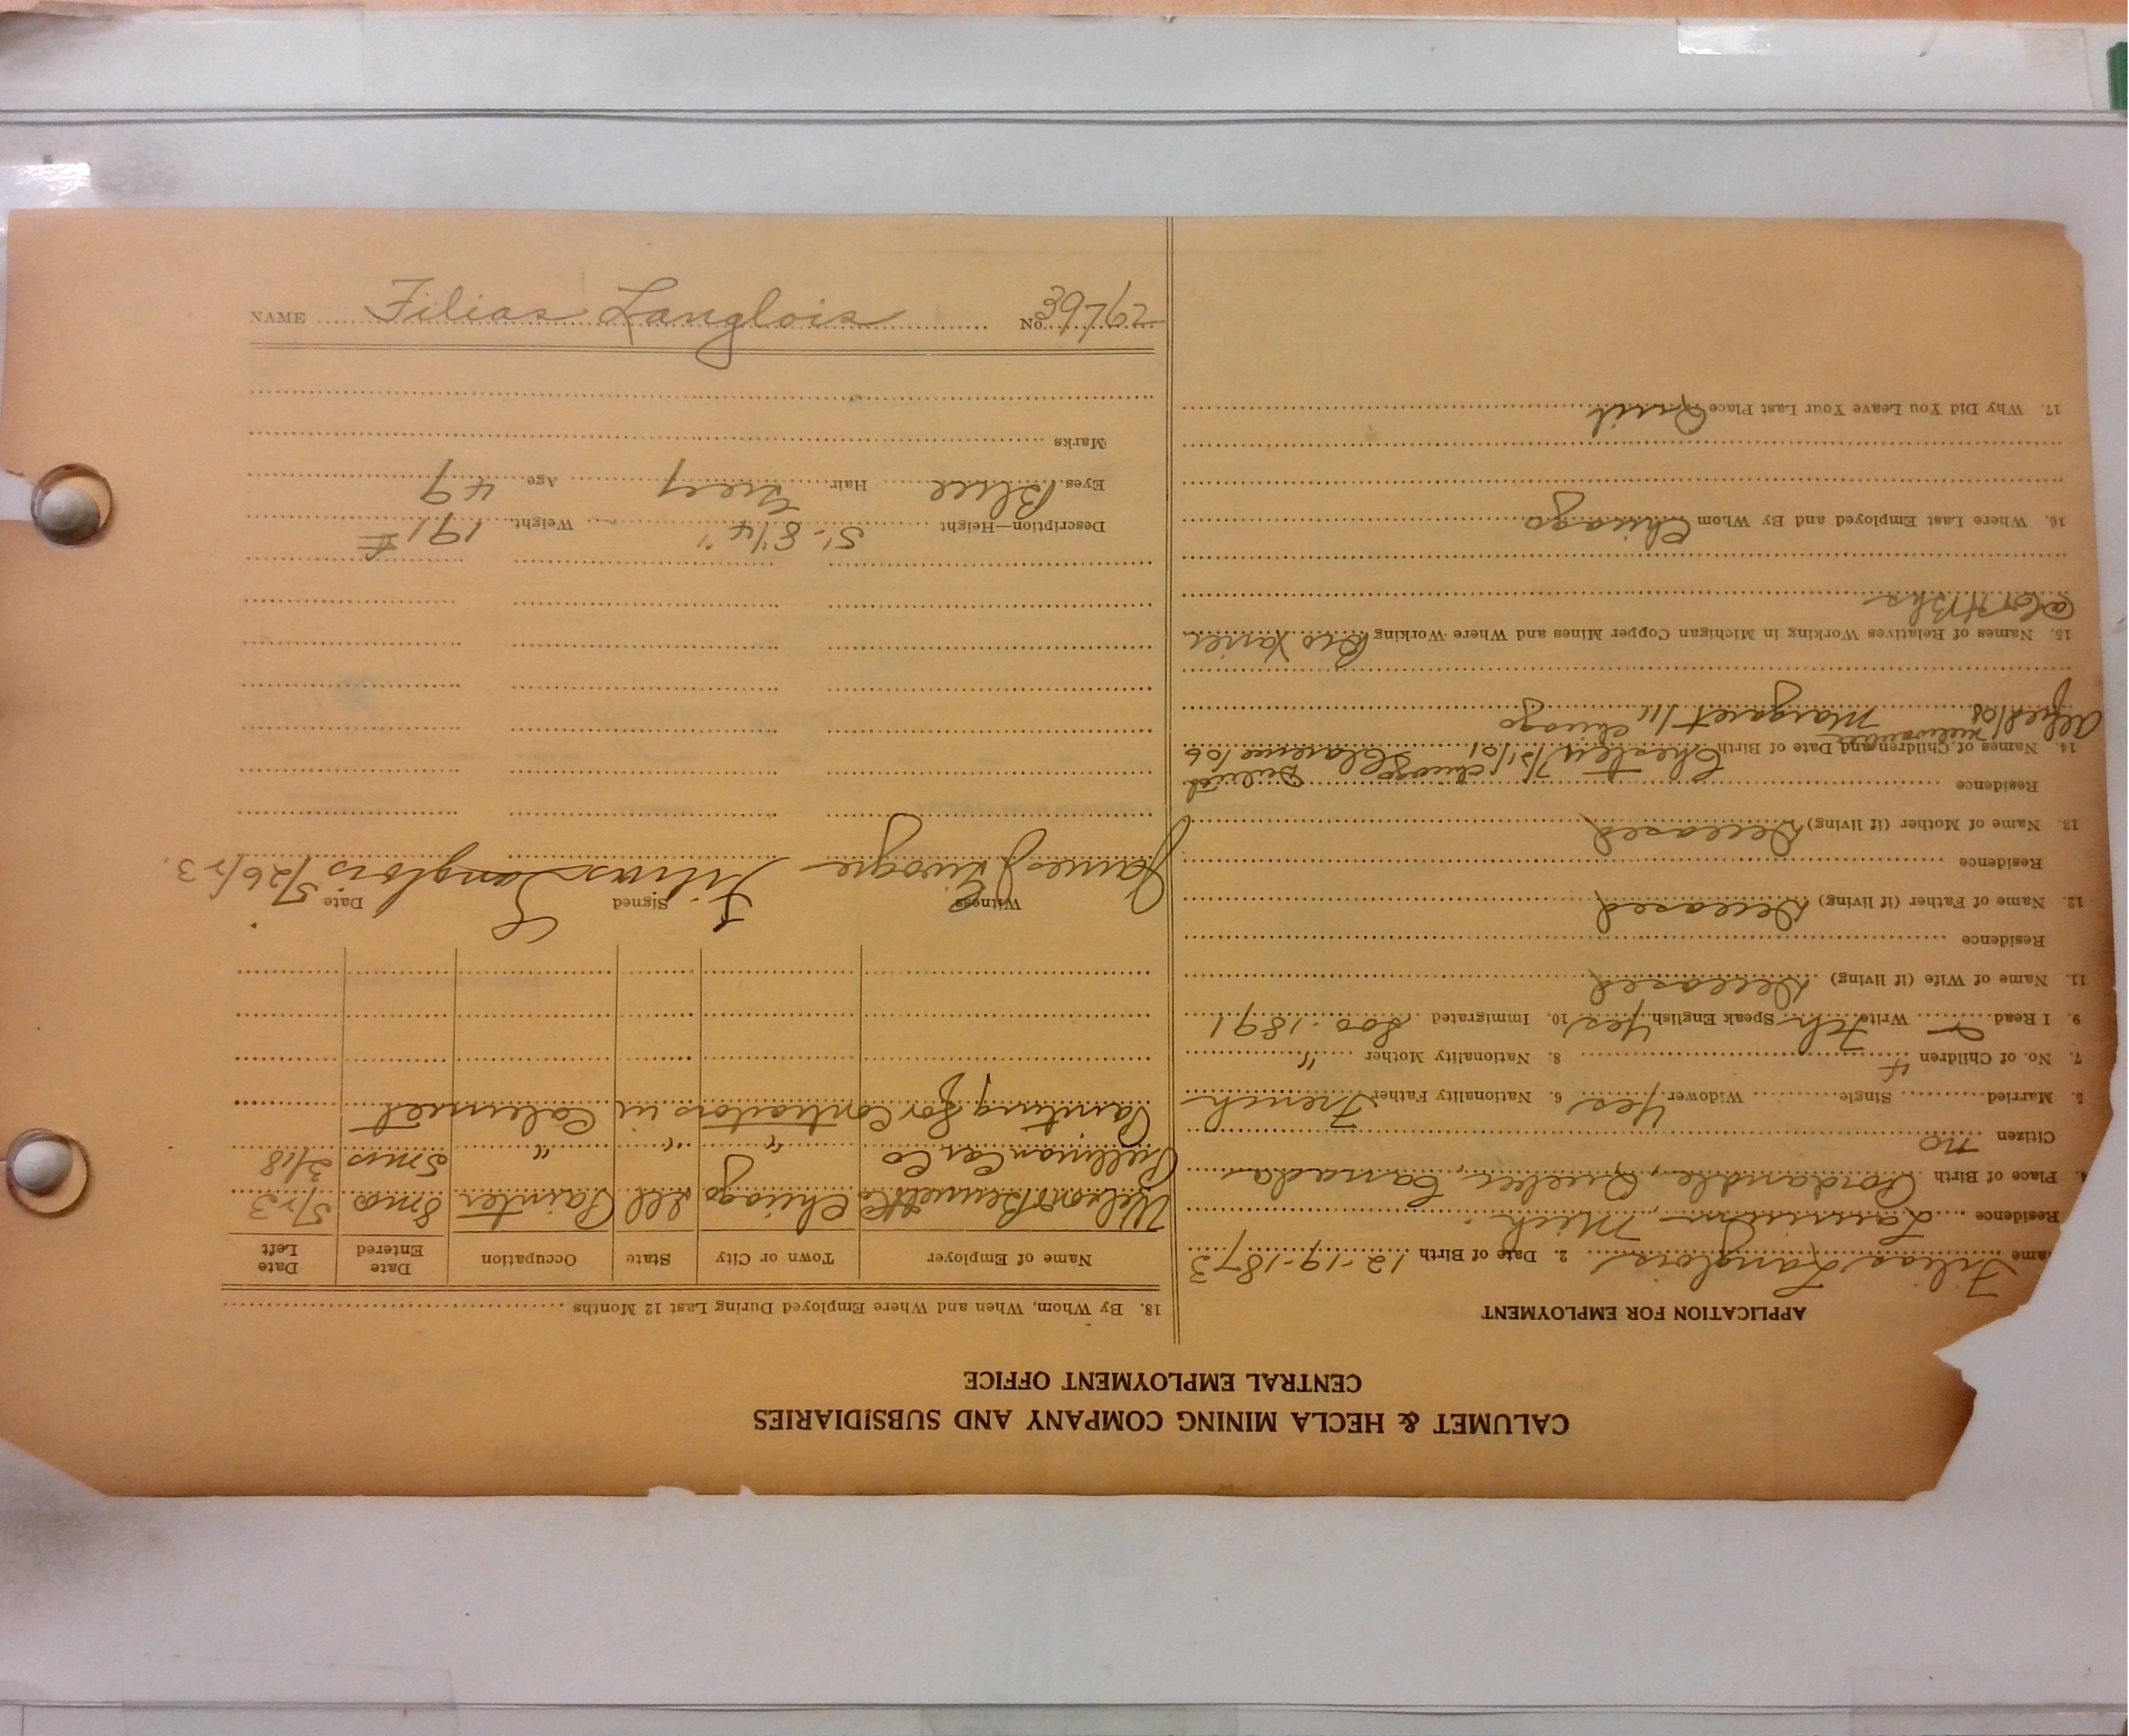 CALUMET & HECLA MINING COMPANY AND SUBSIDIARIES
CENTRAL EMPLOYMENT OFFICE
APPLICATION FOR EMPLOYMENT
ame Filias Langlois 2. Date of Birth 12-19-1873
Residence Laurium Mich.
4. Place of Birth Quebec, Canada
Citizen no
5. Married Single Widower Yes 6. Nationality Father French
7. No. of Children 4 8. Nationality Mother "
9. I Read Write Fch Speak English Yes 10. Immigrated Soo. 1891
11. Name of Wife (if living) Deceased
Residence
12. Name of Father (if living) Deceased
Residence
13. Name of Mother (if living) Deceased
Residence
14. Names of Children and Date of Birth Chester 7/21/01 Chicago Clarence/06 Duluth
Alfred/08 Milwaukee Margaret/11 Chicago
15. Names of Relatives Working in Michigan Copper Mines and Where Working Bro Xavier
16. Where Last Employed and By Whom Chicago
17. Why Did You Leave Your Last Place Quit
18. By Whom, When and Where Employed During Last 12 Months
Name of Employer Town or City State Occupation Date Entered Date Left
Chicago Ill Painter 8 mos 5/23
Pullman Car Co " " " 5 mos 2/18
Painting for Contractors in Calumet
Witness Signed Date
James Filias Langlois 5/26/23.
Description—Height 5'-8 1/4" Weight 191 #
Eyes Blue Hair Grey Age 49
Marks
NAME Filias Langlois No. 39762